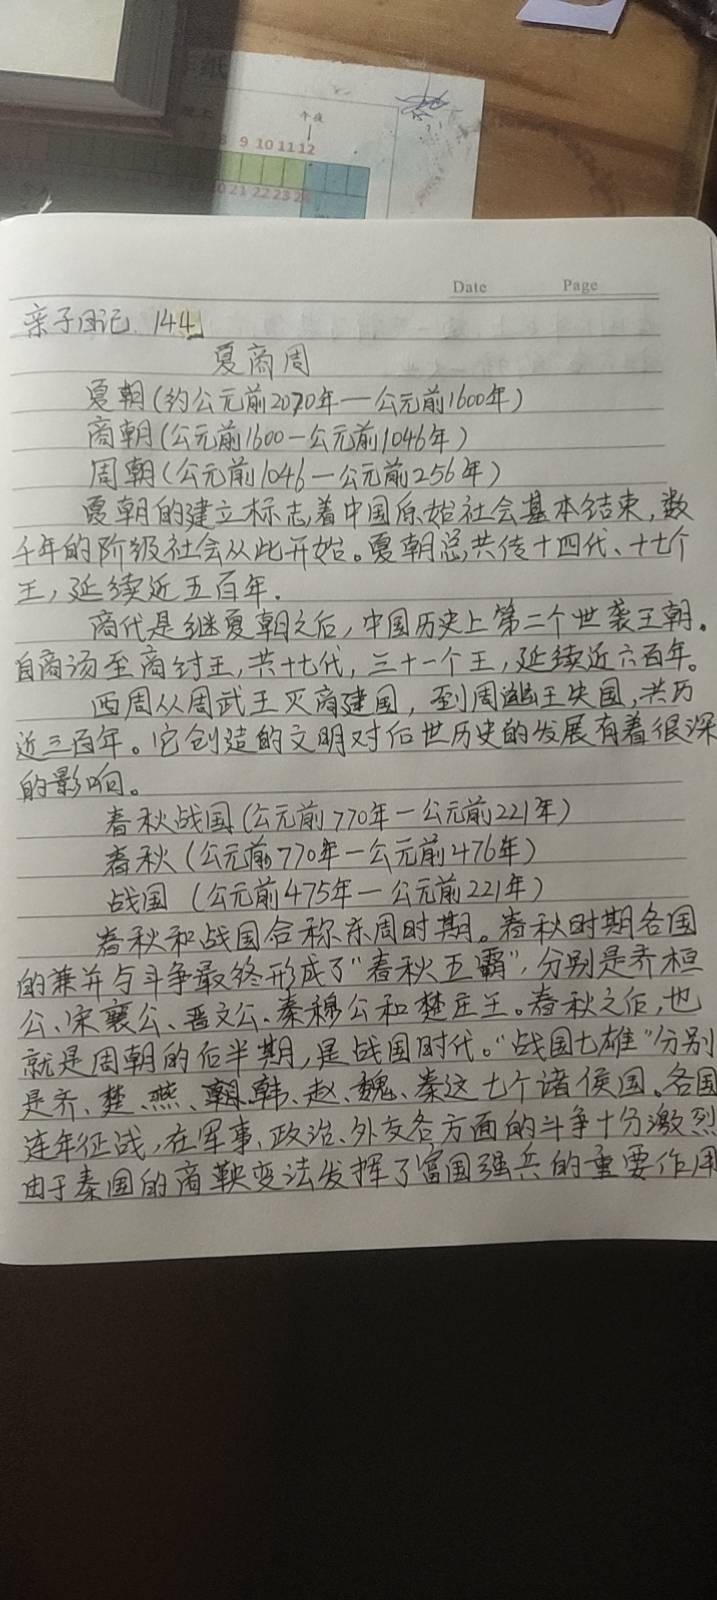 午夜
9 10 11 12
20 21 22 23 24
Date Page
亲子日记 144
夏商周
夏朝(约公元前2070年—公元前1600年)
商朝(公元前1600—公元前1046年)
周朝(公元前1046—公元前256年)
夏朝的建立标志着中国原始社会基本结束,数
千年的阶级社会从此开始。夏朝总共传十四代、十七个
王,延续近五百年.
商代是继夏朝之后,中国历史上第二个世袭王朝。
自商汤至商纣王,共十七代,三十一个王,延续近六百年。
西周从周武王灭商建国,到周幽王失国,共历
近三百年。它创造的文明对后世历史的发展有着很深
的影响。
春秋战国(公元前770年—公元前221年)
春秋(公元前770年—公元前476年)
战国(公元前475年—公元前221年)
春秋和战国合称东周时期。春秋时期各国
的兼并与斗争最终形成了“春秋五霸”,分别是齐桓
公、宋襄公、晋文公、秦穆公和楚庄王。春秋之后,也
就是周朝的后半期,是战国时代。“战国七雄”分别
是齐、楚、燕、韩、赵、魏、秦这七个诸侯国。各国
连年征战,在军事、政治、外交各方面的斗争十分激烈
由于秦国的商鞅变法发挥了富国强兵的重要作用